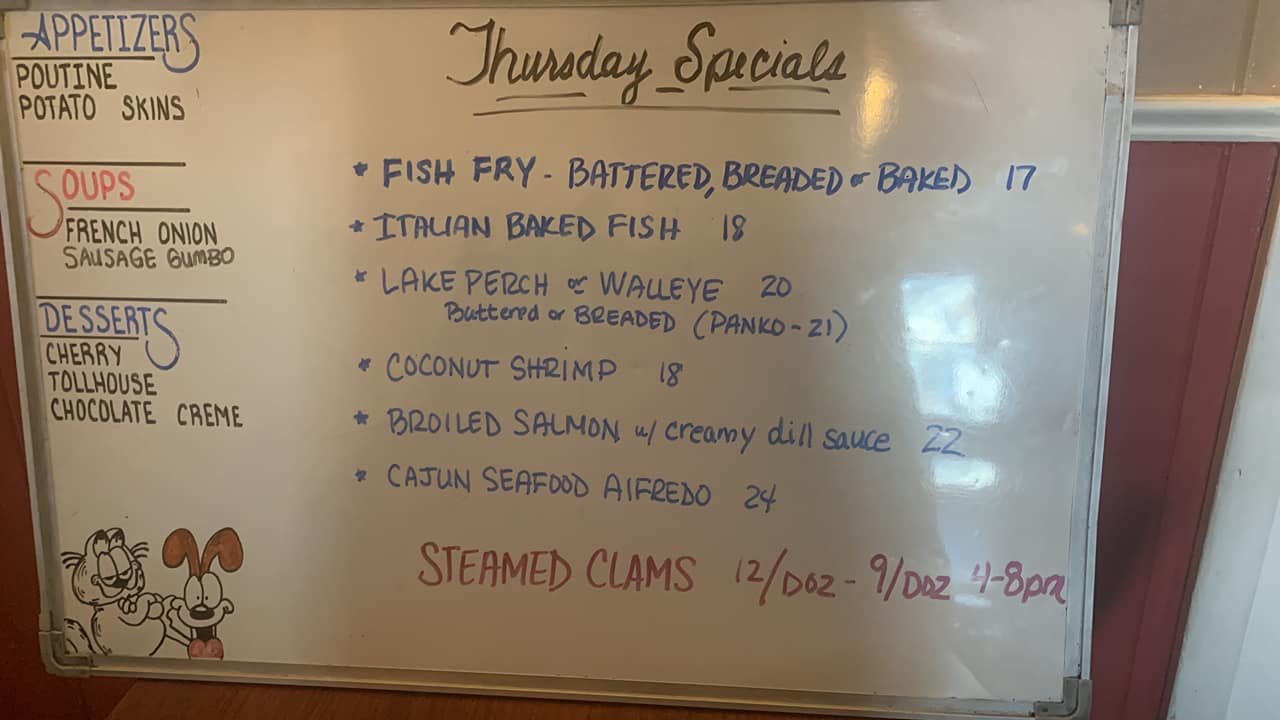 APPETIZERS
POUTINE
POTATO SKINS
SOUPS
FRENCH ONION
SAUSAGE GUMBO
DESSERTS
CHERRY
TOLLHOUSE
CHOCOLATE CREME
Thursday Specials
* FISH FRY - BATTERED, BREADED or BAKED 17
* ITALIAN BAKED FISH 18
* LAKE PERCH or WALLEYE 20
Buttered or BREADED (PANKO - 21)
* COCONUT SHRIMP 18
* BROILED SALMON w/ creamy dill sauce 22
* CAJUN SEAFOOD AlFREDO 24
STEAMED CLAMS 12/DOZ - 9/DOZ 4-8pm